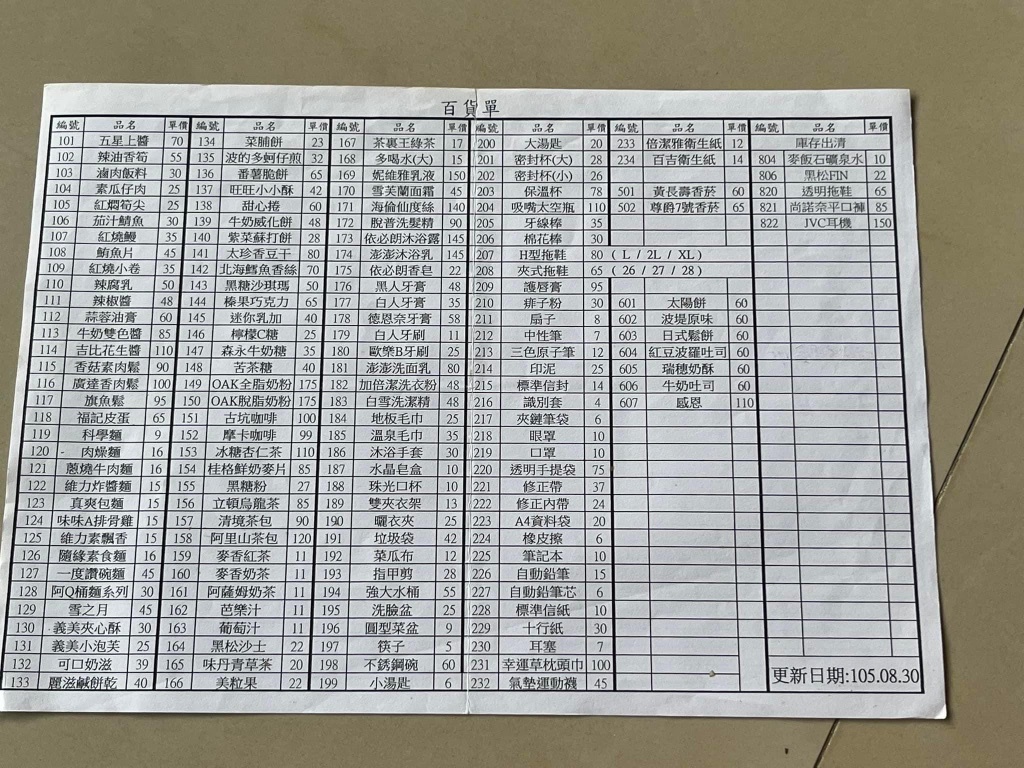 百貨單
編號 品名 單價 編號 品名 單價 編號 品名 單價 編號 品名 單價 編號 品名 單價 編號 品名 單價
101 五星上醬 70 134 菜脯餅 23 167 茶裏王綠茶 17 200 大湯匙 20 233 倍潔雅衛生紙 12 庫存出清
102 辣油香筍 55 135 波的多蚵仔煎 32 168 多喝水(大) 15 201 密封杯(大) 28 234 百吉衛生紙 14 804 麥飯石礦泉水 10
103 滷肉飯料 30 136 番薯脆餅 65 169 妮維雅乳液 150 202 密封杯(小) 26 806 黑松FIN 22
104 素瓜仔肉 25 137 旺旺小小酥 42 170 雪芙蘭面霜 45 203 保溫杯 78 501 黃長壽香菸 60 820 透明拖鞋 65
105 紅燜筍尖 25 138 甜心捲 60 171 海倫仙度絲 140 204 吸嘴太空瓶 110 502 尊爵7號香菸 65 821 尚諾奈平口褲 85
106 茄汁鯖魚 30 139 牛奶威化餅 48 172 脫普洗髮精 90 205 牙線棒 35 822 JVC耳機 150
107 紅燒鰻 35 140 紫菜蘇打餅 28 173 依必朗沐浴露 145 206 棉花棒 30
108 鮪魚片 45 141 太珍香豆干 80 174 澎澎沐浴乳 145 207 H型拖鞋 80 ( L / 2L / XL )
109 紅燒小卷 35 142 北海鱈魚香絲 70 175 依必朗香皂 22 208 夾式拖鞋 65 ( 26 / 27 / 28 )
110 辣腐乳 50 143 黑糖沙琪瑪 50 176 黑人牙膏 48 209 護唇膏 95
111 辣椒醬 48 144 榛果巧克力 65 177 白人牙膏 35 210 痱子粉 30 601 太陽餅 60
112 蒜蓉油膏 60 145 迷你乳加 40 178 德恩奈牙膏 58 211 扇子 8 602 波堤原味 60
113 牛奶雙色醬 85 146 檸檬C糖 25 179 白人牙刷 11 212 中性筆 7 603 日式鬆餅 60
114 吉比花生醬 110 147 森永牛奶糖 35 180 歐樂B牙刷 25 213 三色原子筆 12 604 紅豆波羅吐司 60
115 香菇素肉鬆 90 148 苦茶糖 40 181 澎澎洗面乳 80 214 印泥 25 605 瑞穗奶酥 60
116 廣達香肉鬆 100 149 OAK全脂奶粉 175 182 加倍潔洗衣粉 48 215 標準信封 14 606 牛奶吐司 60
117 旗魚鬆 95 150 OAK脫脂奶粉 175 183 白雪洗潔精 48 216 識別套 4 607 感恩 110
118 福記皮蛋 65 151 古坑咖啡 100 184 地板毛巾 25 217 夾鏈筆袋 6
119 科學麵 9 152 摩卡咖啡 99 185 溫泉毛巾 35 218 眼罩 10
120 肉燥麵 16 153 冰糖杏仁茶 110 186 沐浴手套 30 219 口罩 10
121 蔥燒牛肉麵 16 154 桂格鮮奶麥片 85 187 水晶皂盒 10 220 透明手提袋 75
122 維力炸醬麵 15 155 黑糖粉 27 188 珠光口杯 10 221 修正帶 37
123 真爽包麵 15 156 立頓烏龍茶 85 189 雙夾衣架 13 222 修正內帶 24
124 味味A排骨雞 15 157 清境茶包 90 190 曬衣夾 25 223 A4資料袋 20
125 維力素飄香 15 158 阿里山茶包 120 191 垃圾袋 42 224 橡皮擦 6
126 隨緣素食麵 16 159 麥香紅茶 11 192 菜瓜布 12 225 筆記本 10
127 一度讚碗麵 45 160 麥香奶茶 11 193 指甲剪 28 226 自動鉛筆 15
128 阿Q桶麵系列 30 161 阿薩姆奶茶 11 194 強大水桶 55 227 自動鉛筆芯 6
129 雪之月 45 162 芭樂汁 11 195 洗臉盆 25 228 標準信紙 10
130 義美夾心酥 30 163 葡萄汁 11 196 圓型菜盆 9 229 十行紙 30
131 義美小泡芙 25 164 黑松沙士 22 197 筷子 5 230 耳塞 7
132 可口奶滋 39 165 味丹青草茶 20 198 不銹鋼碗 60 231 幸運草枕頭巾 100
133 麗滋鹹餅乾 40 166 美粒果 22 199 小湯匙 6 232 氣墊運動襪 45
更新日期:105.08.30